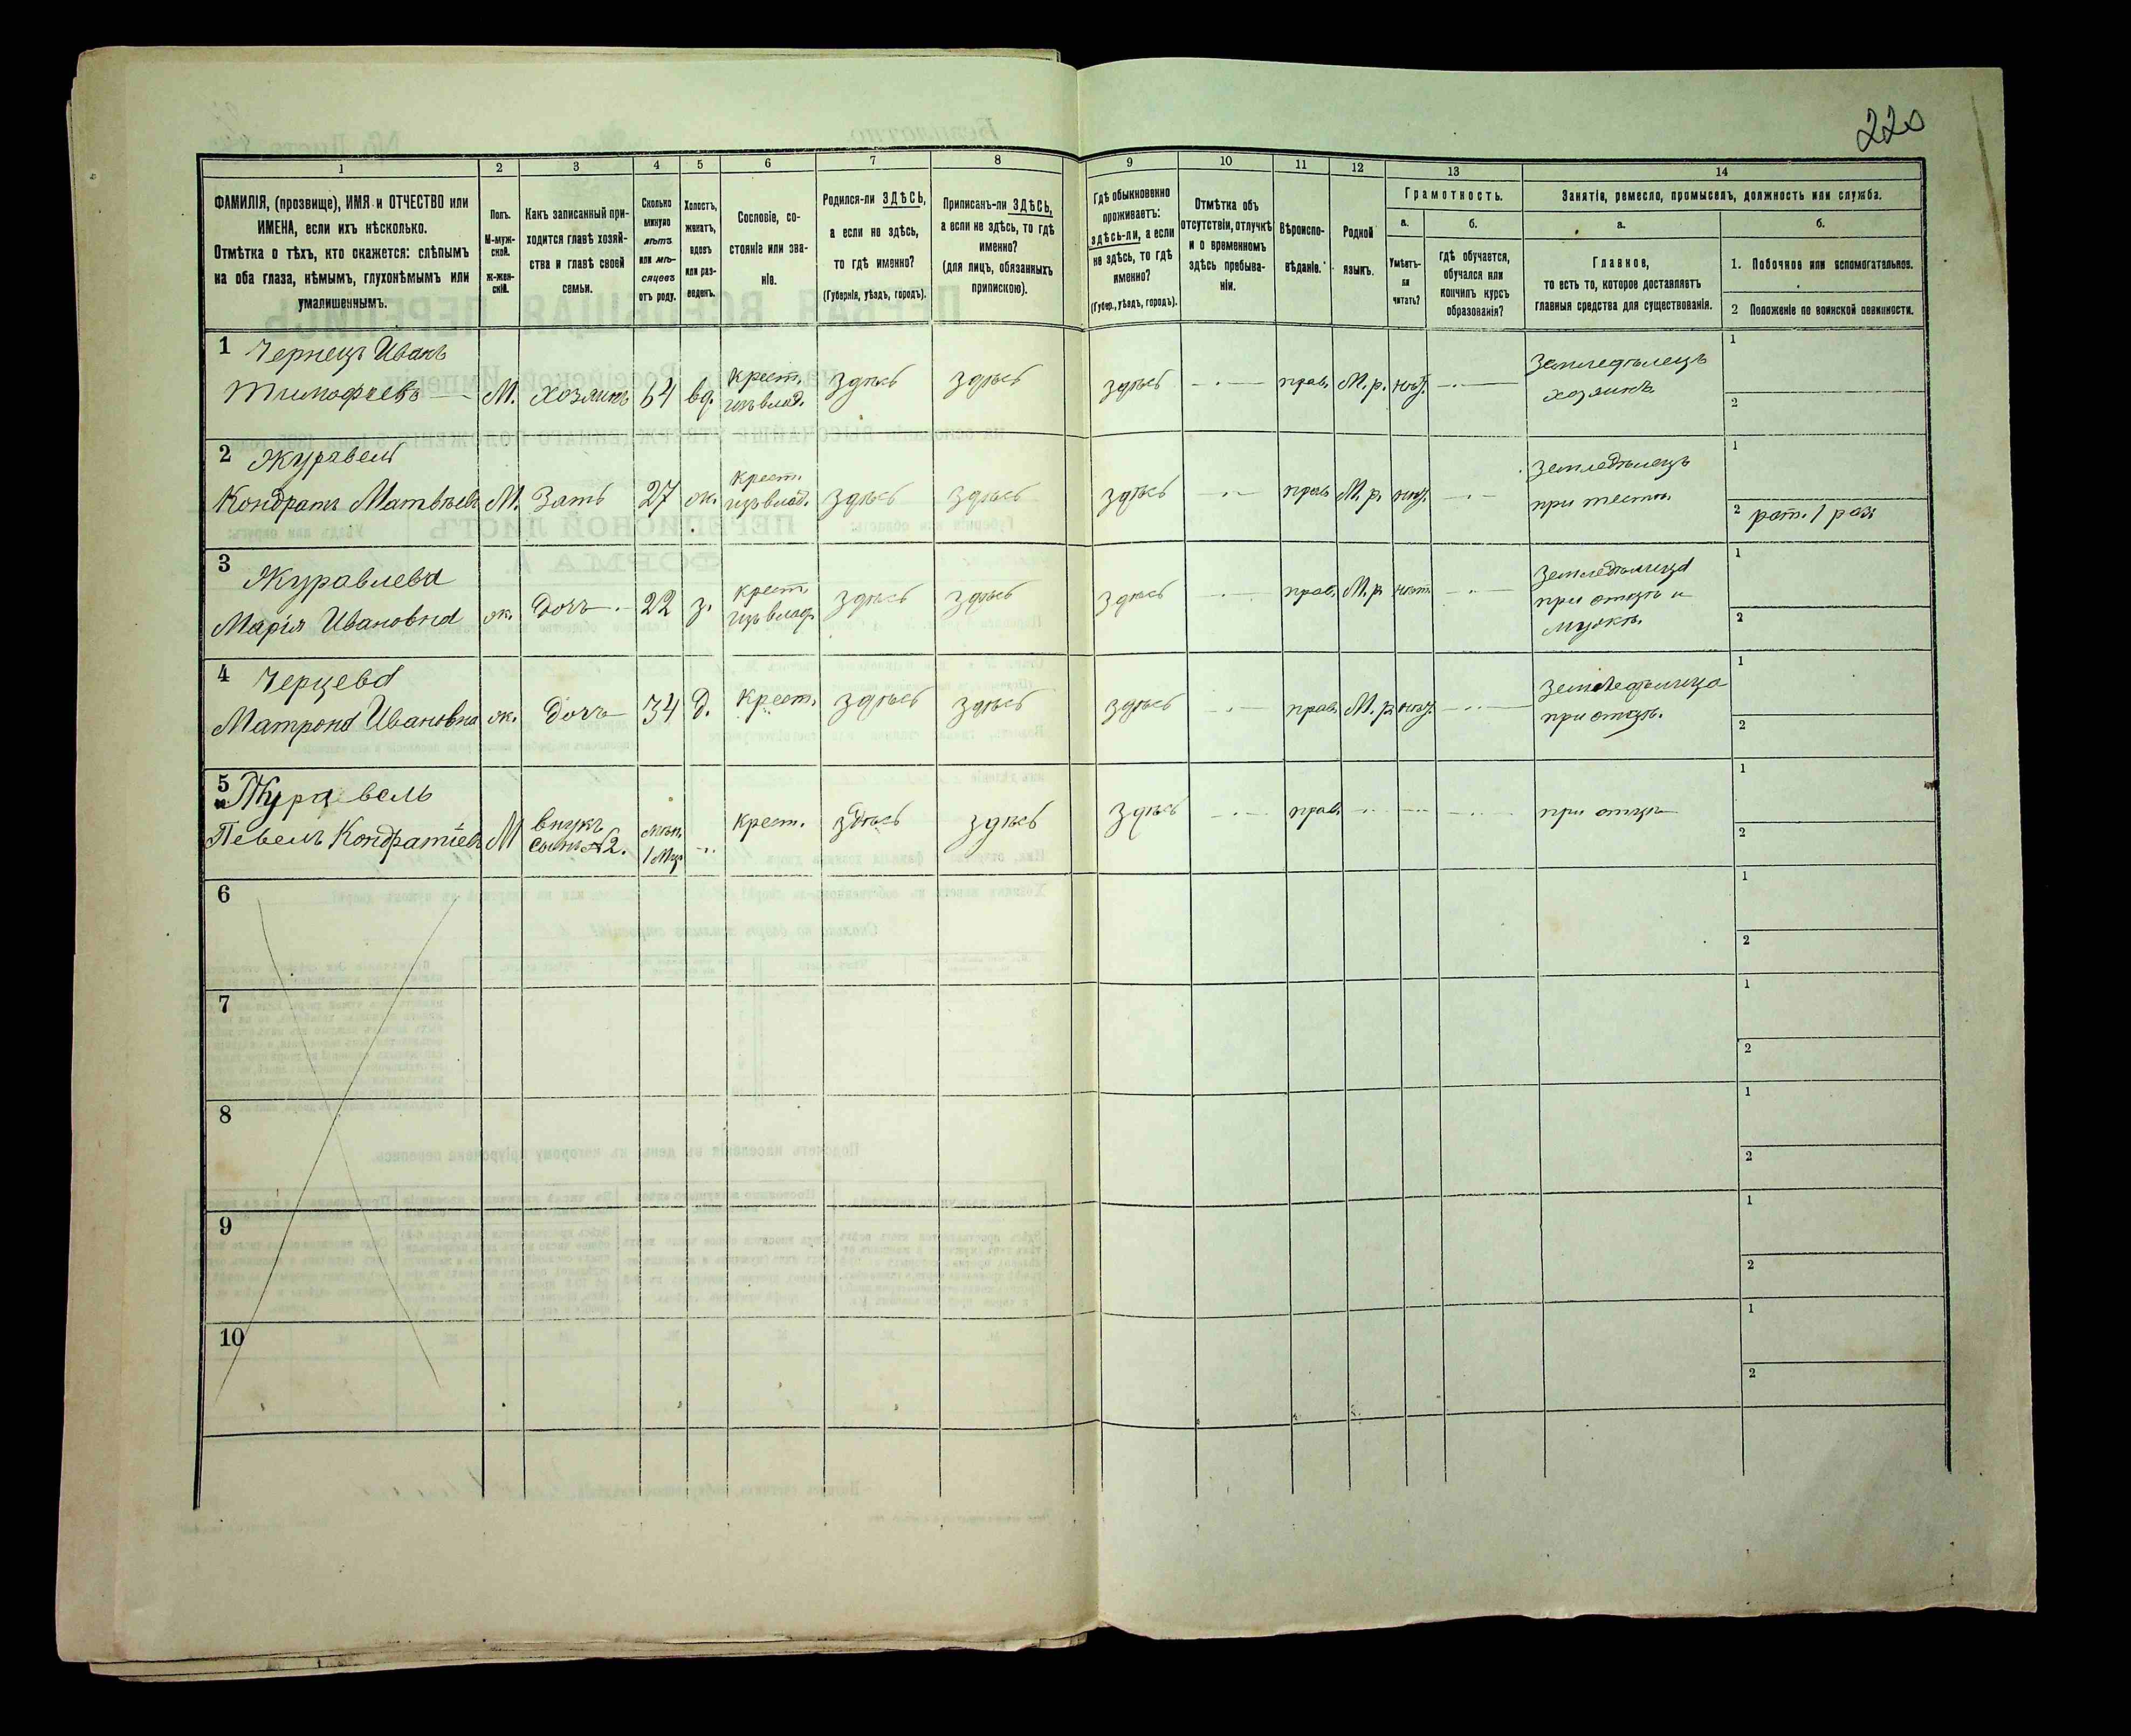 220
1
2
3
4
5
6
7
8
9
10
11
12
13
14
ФАМИЛІЯ, (прозвище), ИМЯ и ОТЧЕСТВО или
ИМЕНА, если ихъ нѣсколько.
Отмѣтка о тѣхъ, кто окажется: слѣпымъ
на оба глаза, нѣмымъ, глухонѣмымъ или
умалишеннымъ.
Полъ.
М-муж-
ской.
Ж-жен-
скій.
Какъ записанный при-
ходится главѣ хозяй-
ства и главѣ своей
семьи.
Сколько
минуло
лѣтъ
или мѣ-
сяцевъ
отъ роду.
Холостъ,
женатъ,
вдовъ
или раз-
веденъ.
Сословіе, со-
стояніе или зва-
ніе.
Родился-ли ЗДѢСЬ,
а если не здѣсь,
то гдѣ именно?
(Губернія, уѣздъ, городъ).
Приписанъ-ли ЗДѢСЬ,
а если не здѣсь, то гдѣ
именно?
(для лицъ, обязанныхъ
припискою).
Гдѣ обыкновенно
проживаетъ:
здѣсь-ли, а если
не здѣсь, то гдѣ
именно?
(Губер., уѣздъ, городъ).
Отмѣтка объ
отсутствіи, отлучкѣ
и о временномъ
здѣсь пребыва-
ніи.
Вѣроиспо-
вѣданіе.
Родной
языкъ.
Грамотность.
а.
Умѣетъ-
ли
читать?
б.
гдѣ обучается,
обучался или
кончилъ курсъ
образованія?
Занятія, ремесло, промыселъ, должность или служба.
а.
Главное,
то есть то, которое доставляетъ
главныя средства для существованія.
б.
1. Побочное или вспомогательное.
2 Положеніе по воинской повинности.
1 Чернецъ Иванъ
Тимофѣевъ М. хозяинъ 64 вд. крест. изъ влад. здѣсь здѣсь здѣсь — прав. М. р. нѣт. — Земледѣлецъ хозяинъ 1 2
2 Журавель
Кондратъ Матвѣевъ М. Зять 27 ж. крест. изъ влад. здѣсь здѣсь здѣсь — прав. М. р. нѣт. — земледѣлецъ при тестѣ. 1 2 рат. 1 раз.
3 Журавлева
Марія Ивановна ж. дочь 22 з. крест. изъ влад. здѣсь здѣсь здѣсь — прав. М. р. нѣт. — земледѣлица при отцѣ и мужѣ. 1 2
4 Черцева
Матрона Ивановна ж. дочь 34 д. крест. здѣсь здѣсь здѣсь — прав. М. р. нѣт. — земледѣлица при отцѣ. 1 2
5 Журавель
Певелъ Кондратіевъ М внукъ сынъ №2. 1 Мц. — крест. здѣсь здѣсь здѣсь — прав. — — — при отцѣ 1 2
6 1 2
7 1 2
8 1 2
9 1 2
10 1 2